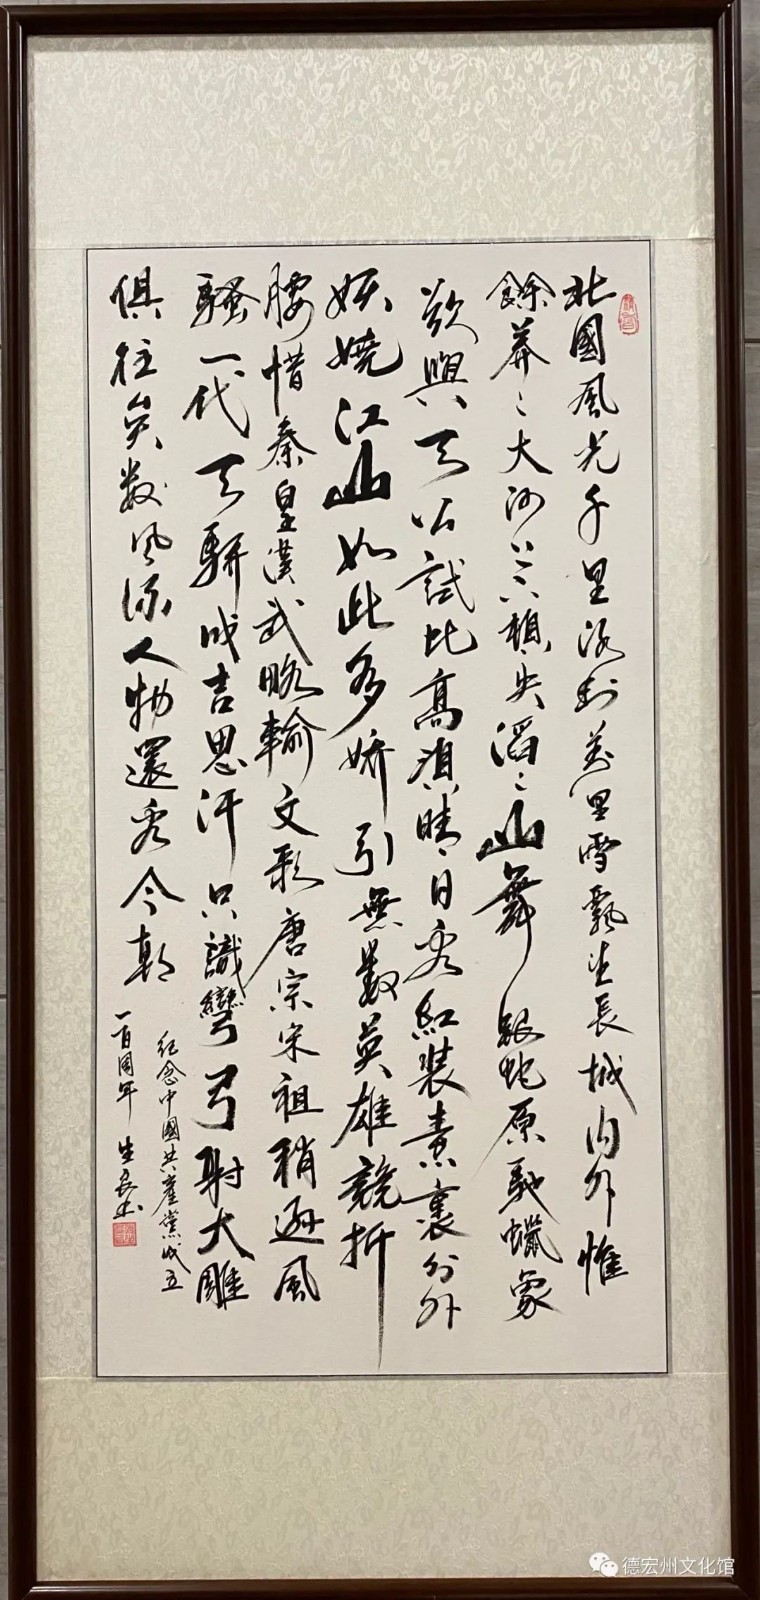 北國風光千里冰封萬里雪飄望長城內外惟
餘莽〻大河上下頓失滔〻山舞銀蛇原馳蠟象
欲與天公試比高須晴日看紅裝素裹分外
妖嬈江山如此多嬌引無數英雄競折
腰惜秦皇漢武略輸文彩唐宗宋祖稍遜風
騷一代天驕成吉思汗只識彎弓射大雕
俱往矣数風流人物還看今朝
紀念中國共產黨成立
一百周年 生良书
德宏州文化馆